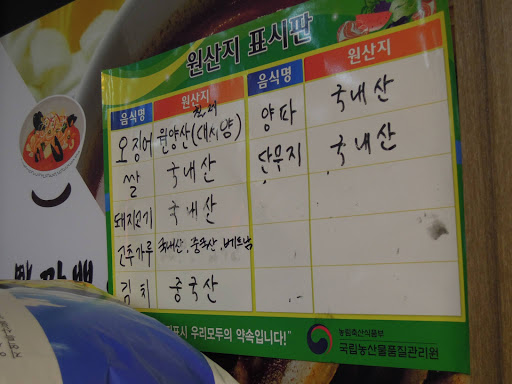 원산지 표시판
음식명 원산지 음식명 원산지
오징어 원양산(대서양) 양파 국내산
쌀 국내산 단무지 국내산
돼지고기 국내산
고추가루 국내산, 중국산, 베트남
김치 중국산
표시 우리모두의 약속입니다!"
농림축산식품부
국립농산물품질관리원